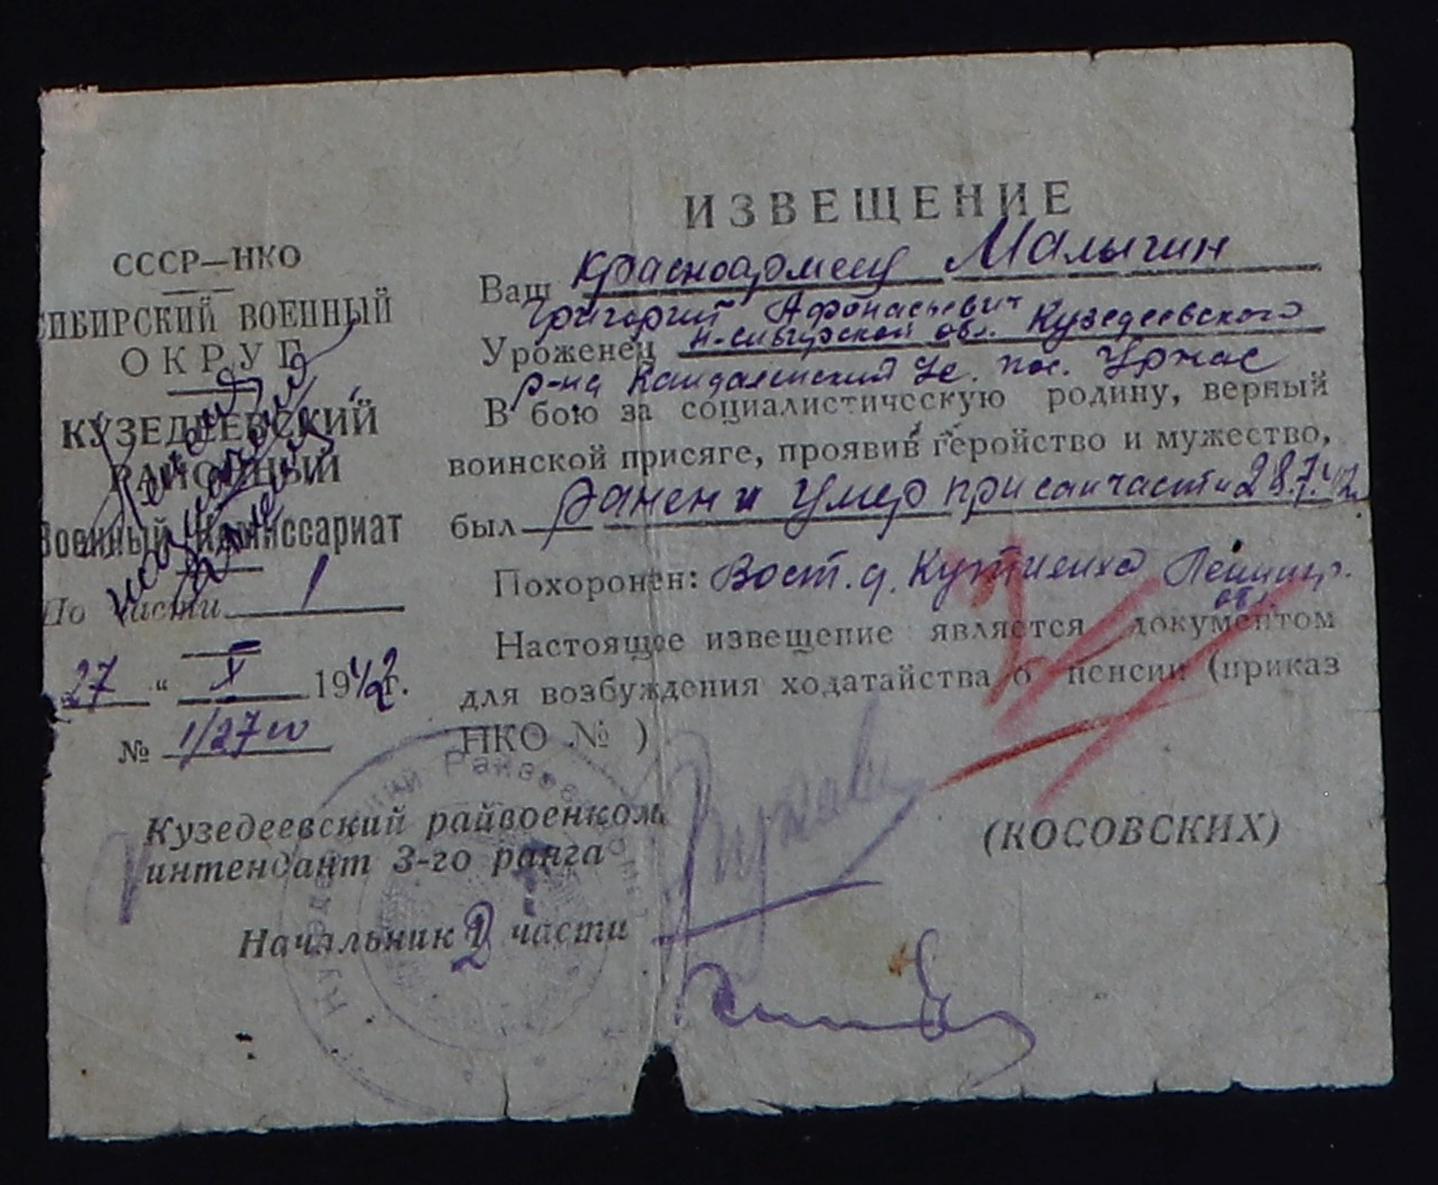 ИЗВЕЩЕНИЕ
СССР—НКО
СИБИРСКИЙ ВОЕННЫЙ
ОКРУГ
КУЗЕДЕЕВСКИЙ
РАЙОННЫЙ
Военный Комиссариат
По части 1
27 " X 1942г.
№ 1/27
Ваш Красноармеец Малыгин
Григорий Афонасьевич
Уроженец Н-сибирской обл. Кузедеевского
р-на пос. Уржас
В бою за социалистическую родину, верный
воинской присяге, проявив геройство и мужество,
был ранен и умер при санчасти 28.7.42
Похоронен: Вост. д. Ленингр.
обл.
Настоящее извещение является документом
для возбуждения ходатайства о пенсии (приказ
НКО № )
Кузедеевский райвоенком
интендант 3-го ранга
(КОСОВСКИХ)
Начальник 2 части